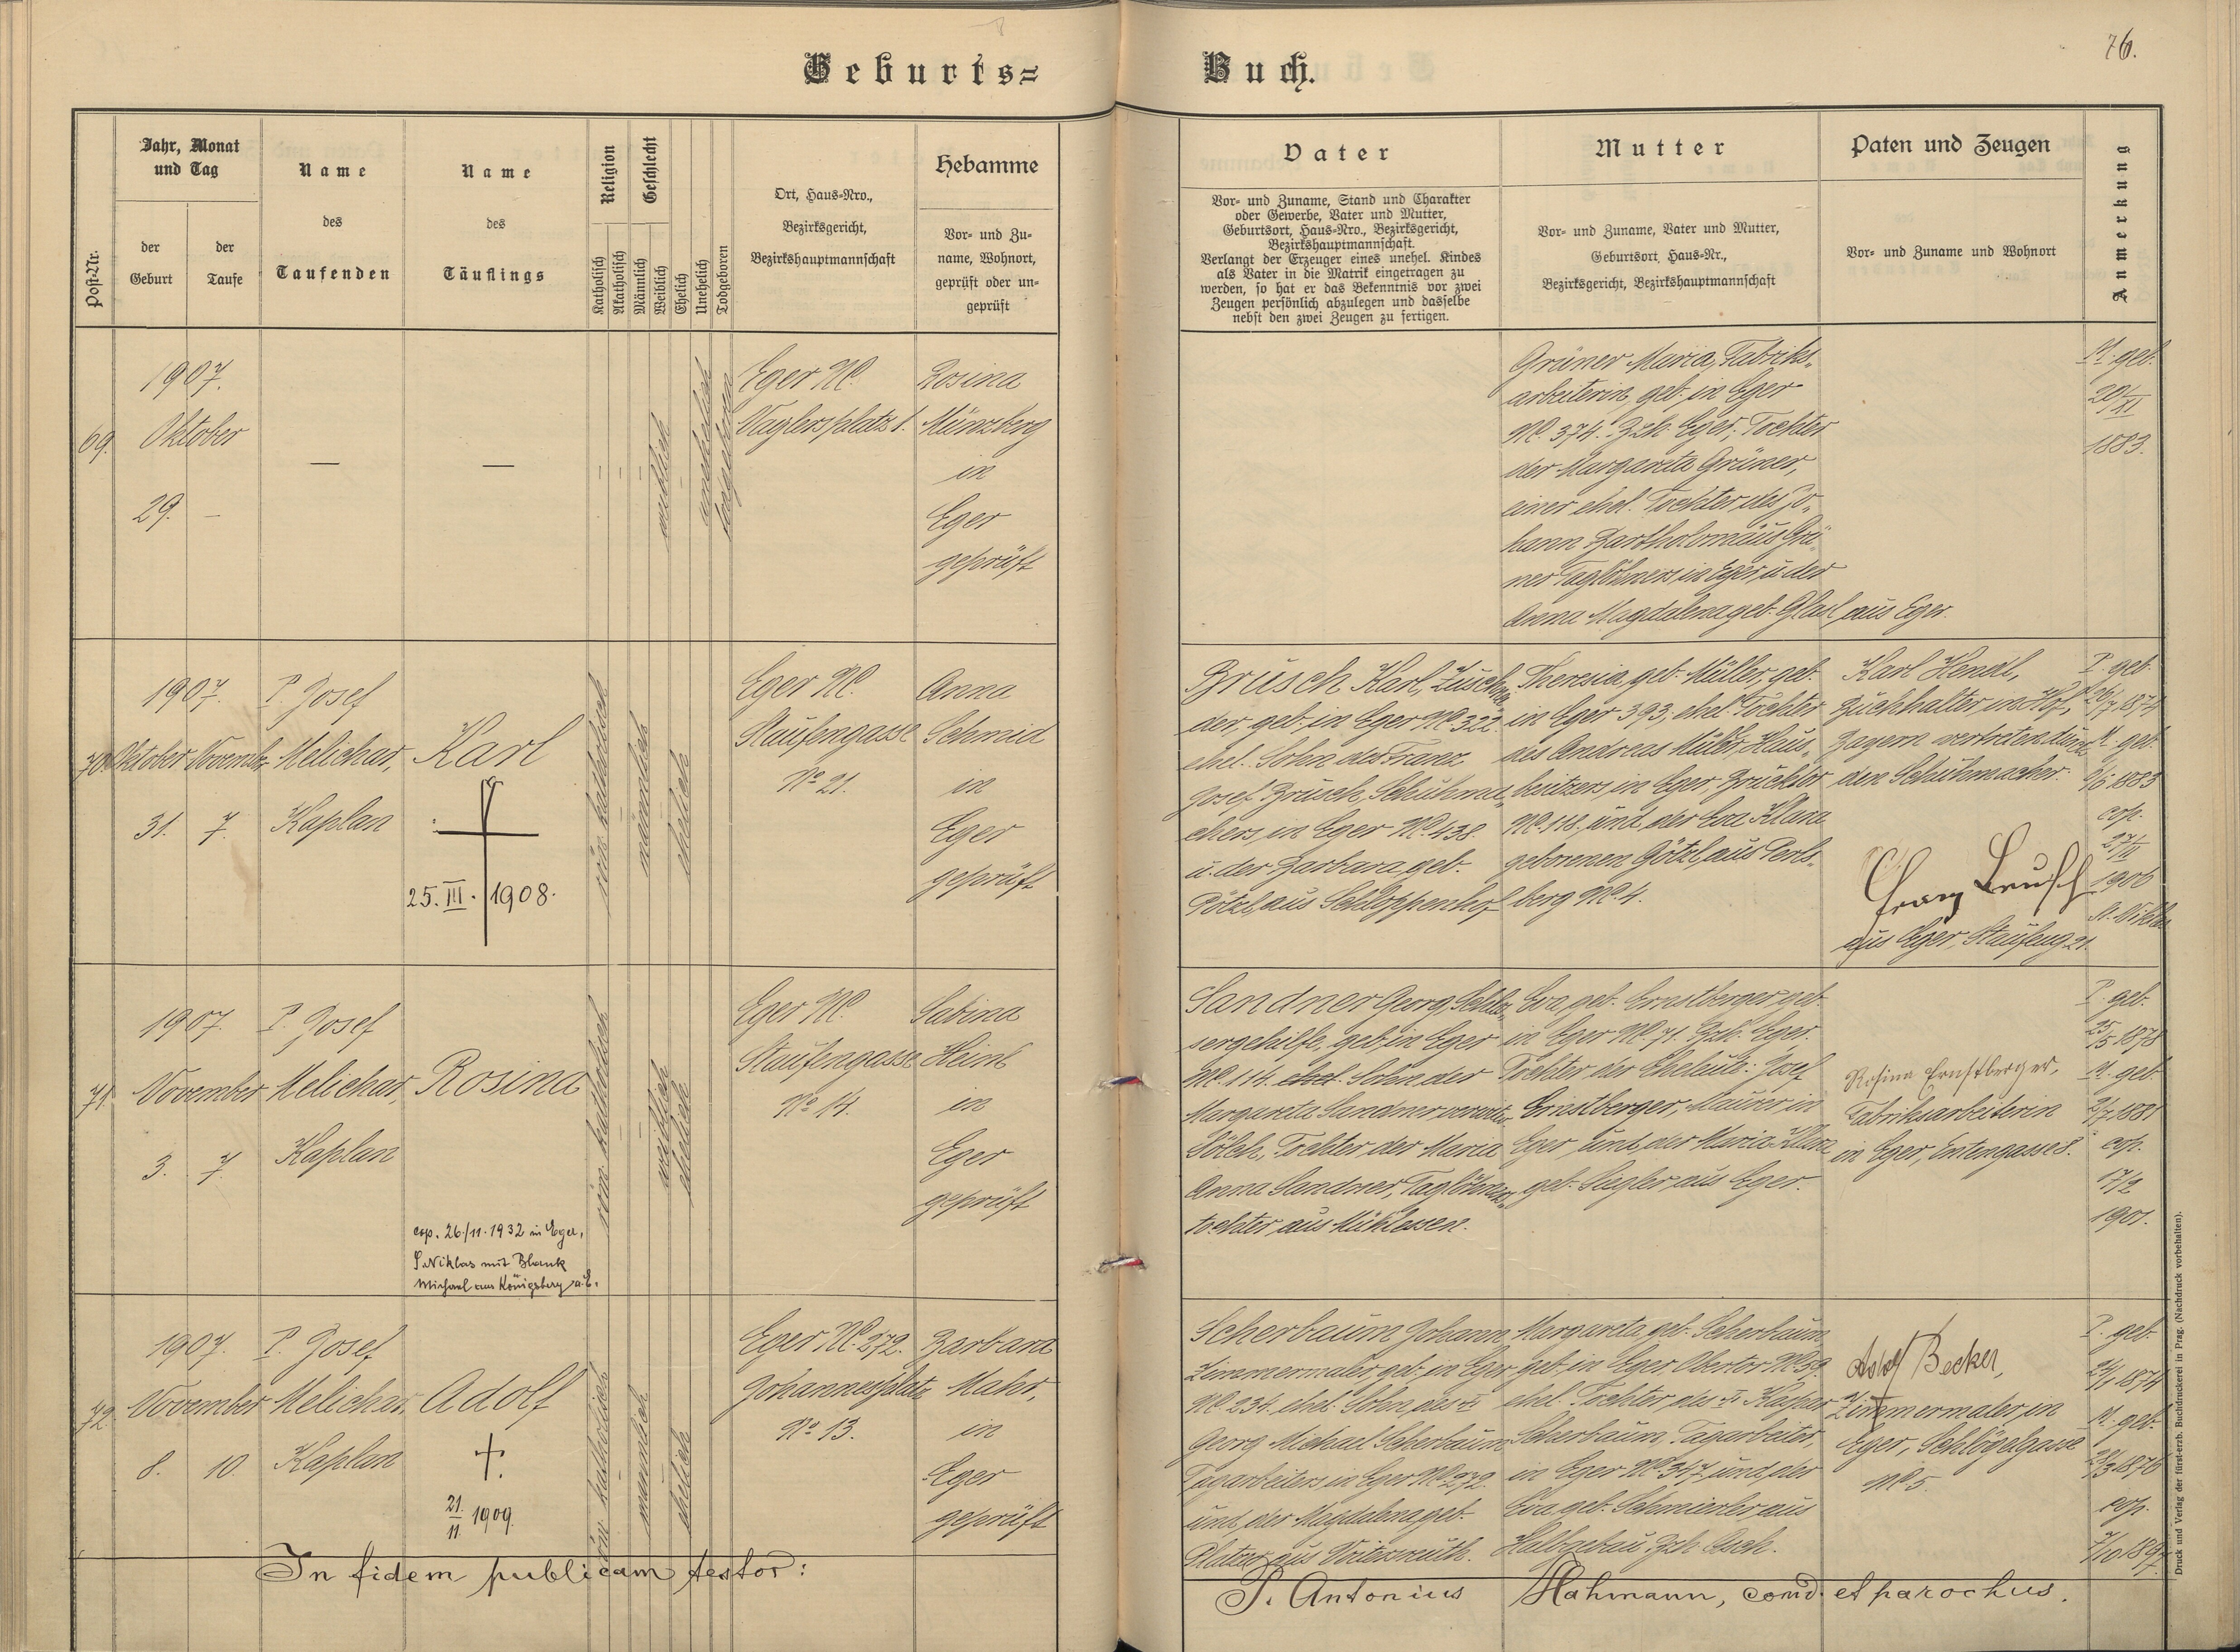 76.
Geburts=
Buch.
Post-Nr.
Jahr, Monat
und Tag
der
Geburt
der
Taufe
Name
des
Taufenden
Name
des
Täuflings
Religion
Katholisch
Akatholisch
Geschlecht
Männlich
Weiblich
Ehelich
Unehelich
Todgeboren
Ort, Haus-Nro.,
Bezirksgericht,
Bezirkshauptmannschaft
Hebamme
Vor- und Zu-
name, Wohnort,
geprüft oder un-
geprüft
Vater
Vor- und Zuname, Stand und Charakter
oder Gewerbe, Vater und Mutter,
Geburtsort, Haus-Nro., Bezirksgericht,
Bezirkshauptmannschaft.
Verlangt der Erzeuger eines unehel. Kindes
als Vater in die Matrik eingetragen zu
werden, so hat er das Bekenntnis vor zwei
Zeugen persönlich abzulegen und dasselbe
nebst den zwei Zeugen zu fertigen.
Mutter
Vor- und Zuname, Vater und Mutter,
Geburtsort, Haus-Nr.,
Bezirksgericht, Bezirkshauptmannschaft
Paten und Zeugen
Vor- und Zuname und Wohnort
Anmerkung
69.
1907.
Oktober
29. -
—
—
weiblich
unehelich
totgeboren
Eger N.C.
platz 1.
Rosina
Münzberg
in
Eger
geprüft
Grüner Maria, Fabriks-
arbeiterin, geb. in Eger
N.C. 374. Bzh. Eger, Tochter
der Margareta Grüner,
einer ehel. Tochter des Jo-
hann Bartholomäus Grü-
ner Taglöhners in Eger u. der
Anna Magdalena geb. Glasl aus Eger.
M. geb.
20/XI
1883.
70.
1907.
Oktober November
31. 7.
P. Josef
Melichar,
Kaplan
Karl
25. III. 1908.
röm. katholisch
männlich
ehelich
Eger N.C.
Staufengasse
No 21.
Anna
Schmid
in
Eger
geprüft
Brusch Karl, Zuschnei-
der, geb. in Eger N.C. 322.
ehel. Sohn des Franz
Josef Brusch, Schuhma-
chers, in Eger N.C. 438.
u. der Barbara geb.
Pötzl, aus Schloppenhof
Theresia, geb. Müller, geb.
in Eger 393, ehel. Tochter
des Andreas Müller, Haus-
besitzers, in Eger, Brucktor
N.C. 118. und der Eva Klara
geborenen Götzl, aus Perls-
berg N.C. 4.
Karl Hendl,
Buchhalter in Hof,
Bayern vertreten durch
den Schuhmacher.
Franz Brusch
aus Eger, Staufeng. 21.
P. geb.
26/7 1874
M. geb.
1883
cop.
27/II
1906
St. Niklas
71.
1907.
November
3. 7.
P. Josef
Melichar,
Kaplan
Rosina
cop. 26./11. 1932 in Eger,
S. Niklas mit Blank
Michael aus Königsberg a. E.
röm. katholisch
weiblich
ehelich
Eger N.C.
Staufengasse
No 14.
Sabina
Heinl
in
Eger
geprüft
Sandner Georg, Schlos-
sergehilfe, geb. in Eger
N.C. 114. ehel. Sohn der
Margareta Sandner
Sölch, Tochter der Maria
Anna Sandner, Taglöhners-
tochter aus Mühlessen.
Eva, geb. Ernstberger, geb.
in Eger N.C. 71. Bzh. Eger.
Tochter der Eheleute: Josef
Ernstberger, Maurer in
Eger, und der Maria Klara
geb. Siegler, aus Eger.
Rosina Ernstberger,
Fabriksarbeiterin
in Eger, Entengasse 8.
P. geb.
25/5 1878
M. geb.
1881
cop.
17/2
1901.
72.
1907.
November
8. 10.
P. Josef
Melichar,
Kaplan
Adolf
21.
11. 1909.
röm. katholisch
männlich
ehelich
Eger N.C. 272.
Johannesplatz
No 13.
Barbara
Mahr,
in
Eger
geprüft
Scherbaum Johann
Zimmermaler, geb. in Eger
N.C. 234. ehel. Sohn des
Georg Michael Scherbaum
Tagarbeiters in Eger N.C. 272.
und der Magdalena geb.
Platzer aus Voitersreuth.
Margareta, geb. Scherbaum
geb. in Eger, Obertor N.C. 39.
ehel. Tochter des Kaspar
Scherbaum, Tagarbeiter,
in Eger N.C. 347 und der
Eva geb. Schmierler aus
Halbgebau, Bzh. Asch.
Adolf Becker,
Zimmermaler in
Eger, Schlögelgasse
N.C. 5.
P. geb.
1874
M. geb.
23/3 1876
cop.
7/10 1897
In fidem publicam testor:
P. Antonius Hahmann, comd. et parochus.
Druck und Verlag der fürst-erzb. Buchdruckerei in Prag. (Nachdruck vorbehalten).